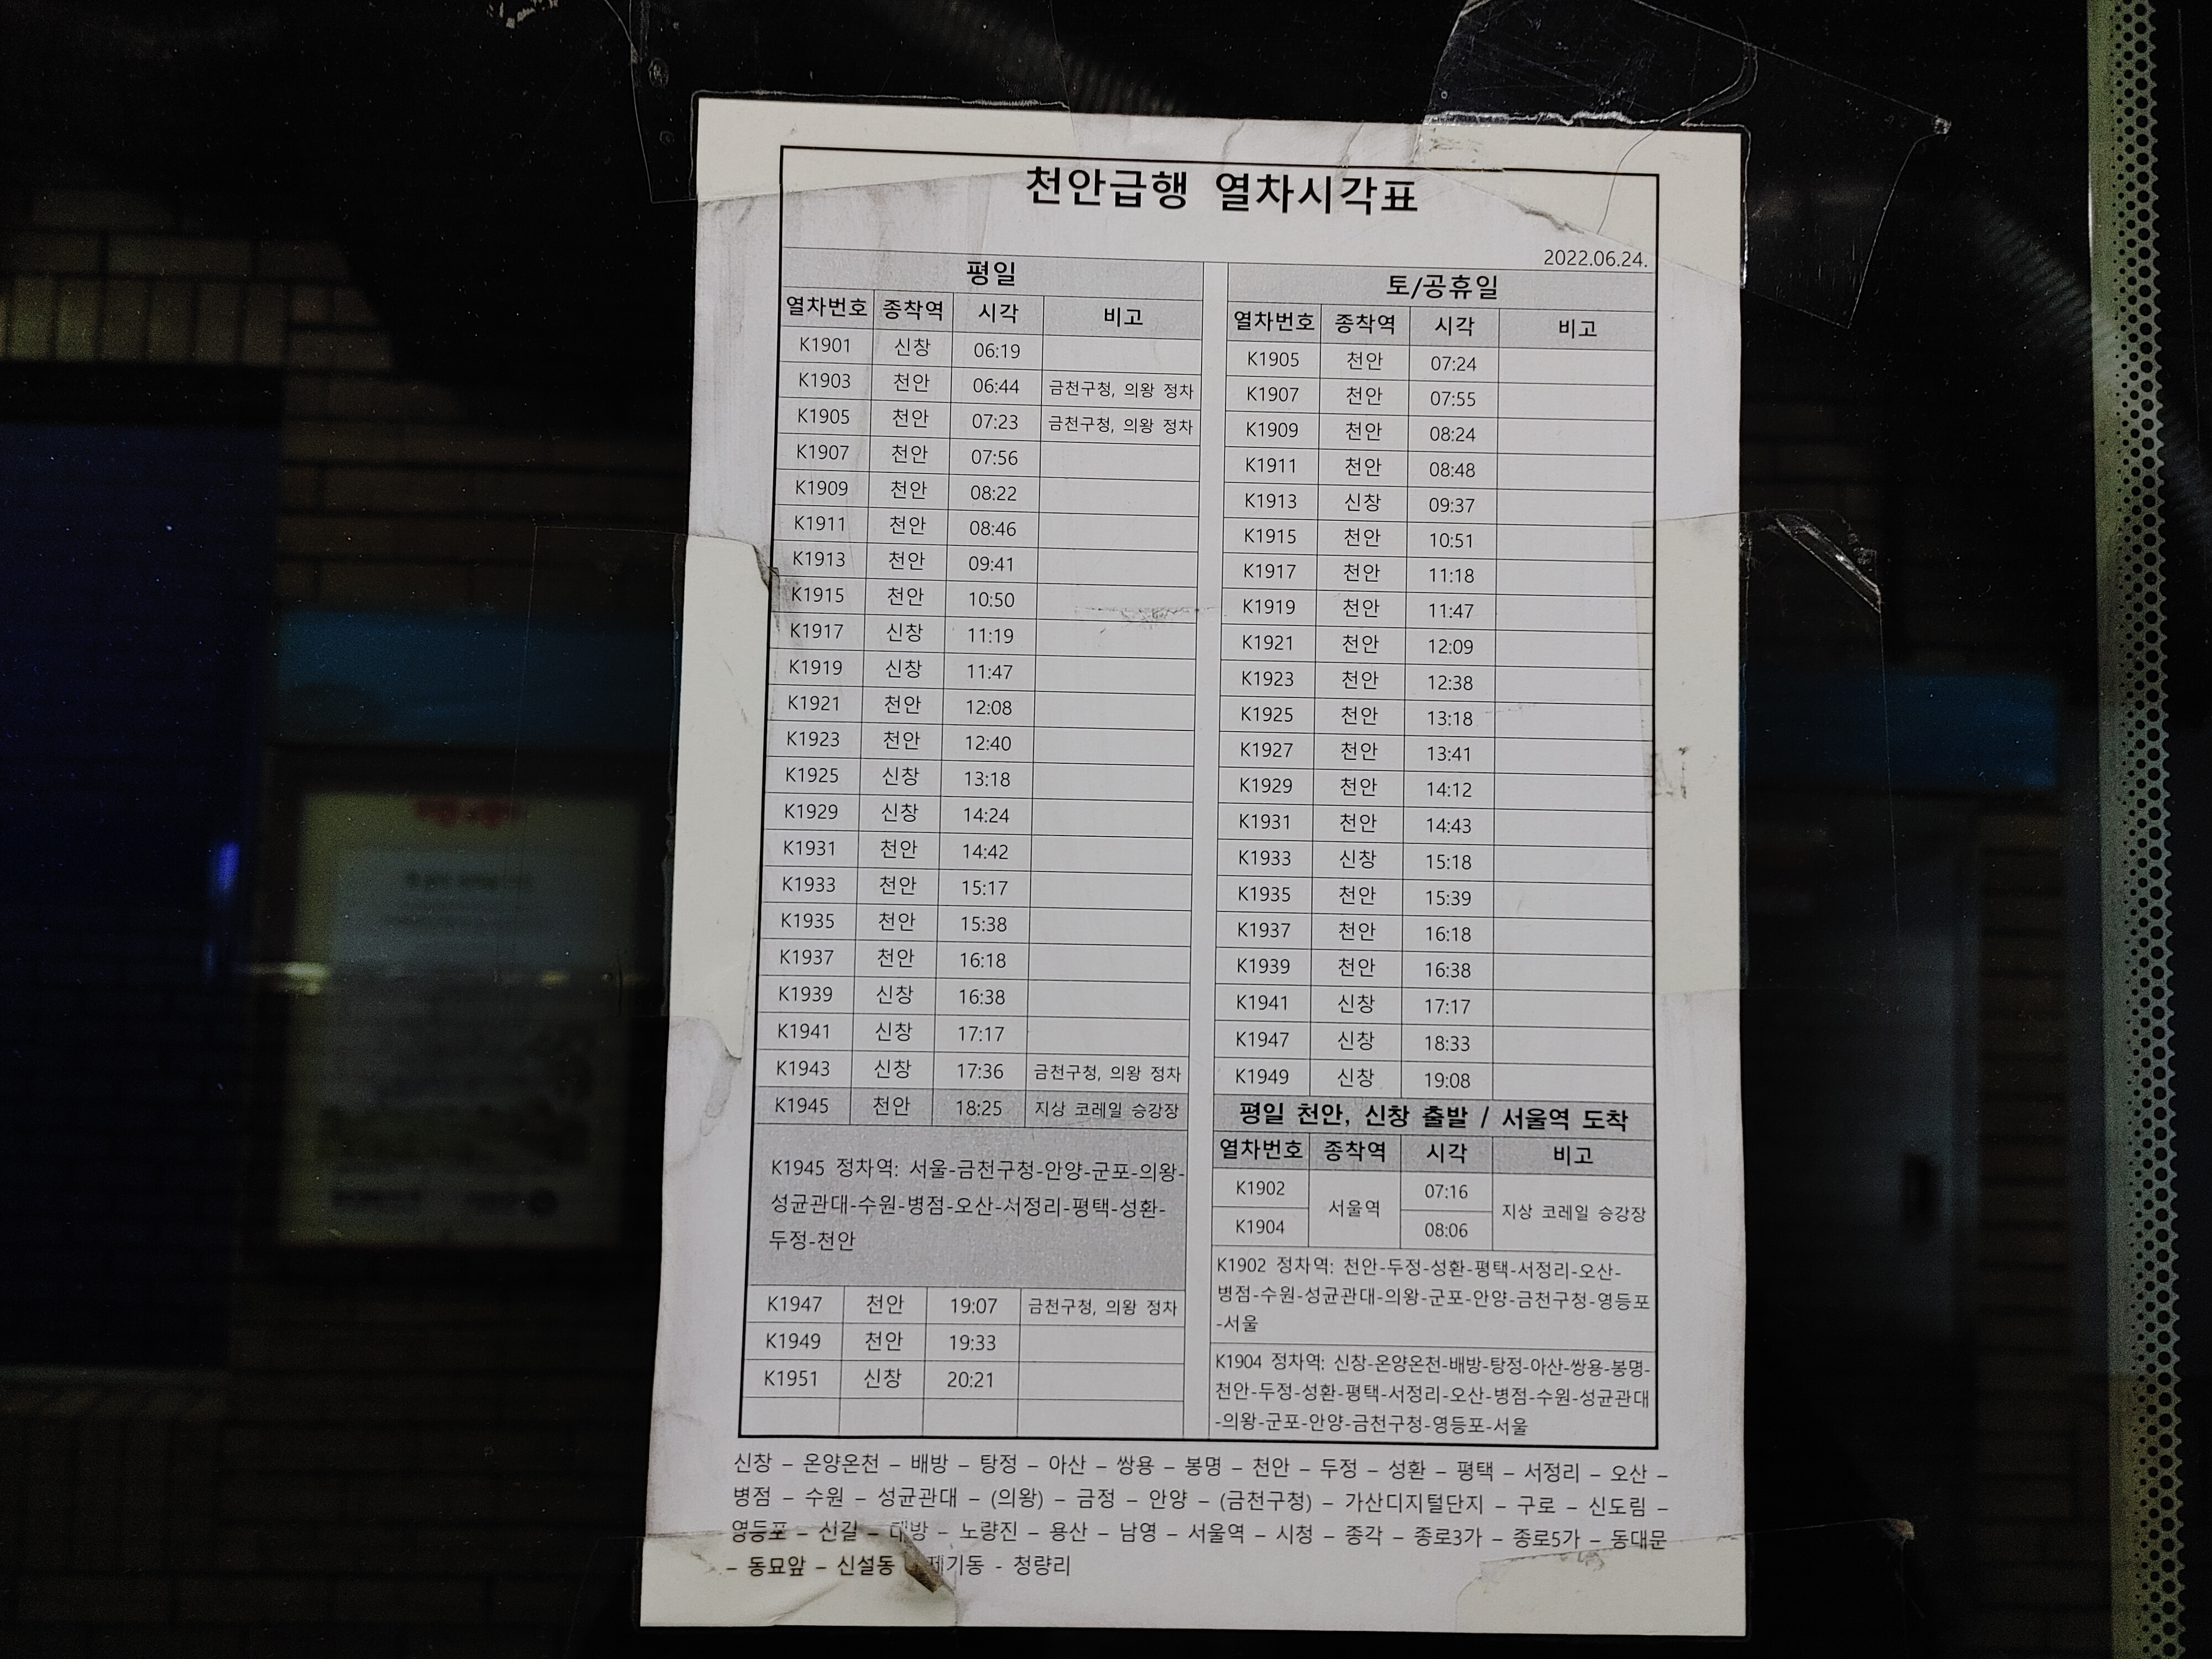 천안급행 열차시각표
2022.06.24.
평일
열차번호 종착역 시각 비고
K1901 신창 06:19
K1903 천안 06:44 금천구청, 의왕 정차
K1905 천안 07:23 금천구청, 의왕 정차
K1907 천안 07:56
K1909 천안 08:22
K1911 천안 08:46
K1913 천안 09:41
K1915 천안 10:50
K1917 신창 11:19
K1919 신창 11:47
K1921 천안 12:08
K1923 천안 12:40
K1925 신창 13:18
K1929 신창 14:24
K1931 천안 14:42
K1933 천안 15:17
K1935 천안 15:38
K1937 천안 16:18
K1939 신창 16:38
K1941 신창 17:17
K1943 신창 17:36 금천구청, 의왕 정차
K1945 천안 18:25 지상 코레일 승강장
K1945 정차역: 서울-금천구청-안양-군포-의왕-
성균관대-수원-병점-오산-서정리-평택-성환-
두정-천안
K1947 천안 19:07 금천구청, 의왕 정차
K1949 천안 19:33
K1951 신창 20:21
토/공휴일
열차번호 종착역 시각 비고
K1905 천안 07:24
K1907 천안 07:55
K1909 천안 08:24
K1911 천안 08:48
K1913 신창 09:37
K1915 천안 10:51
K1917 천안 11:18
K1919 천안 11:47
K1921 천안 12:09
K1923 천안 12:38
K1925 천안 13:18
K1927 천안 13:41
K1929 천안 14:12
K1931 천안 14:43
K1933 신창 15:18
K1935 천안 15:39
K1937 천안 16:18
K1939 천안 16:38
K1941 신창 17:17
K1947 신창 18:33
K1949 신창 19:08
평일 천안, 신창 출발 / 서울역 도착
열차번호 종착역 시각 비고
K1902 서울역 07:16 지상 코레일 승강장
K1904 08:06
K1902 정차역: 천안-두정-성환-평택-서정리-오산-
병점-수원-성균관대-의왕-군포-안양-금천구청-영등포
-서울
K1904 정차역: 신창-온양온천-배방-탕정-아산-쌍용-봉명-
천안-두정-성환-평택-서정리-오산-병점-수원-성균관대
-의왕-군포-안양-금천구청-영등포-서울
신창 – 온양온천 – 배방 – 탕정 – 아산 – 쌍용 – 봉명 – 천안 – 두정 – 성환 – 평택 – 서정리 – 오산 –
병점 – 수원 – 성균관대 – (의왕) – 금정 – 안양 – (금천구청) – 가산디지털단지 – 구로 – 신도림 –
영등포 – 신길 – 대방 – 노량진 – 용산 – 남영 – 서울역 – 시청 – 종각 – 종로3가 – 종로5가 – 동대문
– 동묘앞 – 신설동 제기동 - 청량리